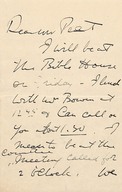 Dear Mr Peet
I will be at
the Bible House
on Friday. I lunch
with Mr Bowen at
12 Can call on
You at 1.30
I
must be at the
Committee
meeting called for
2 o'clock. We